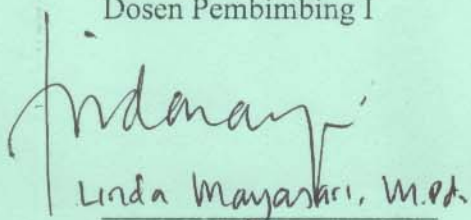 Dosen Pembimbing I
Linda Mayasari, M.Pd.